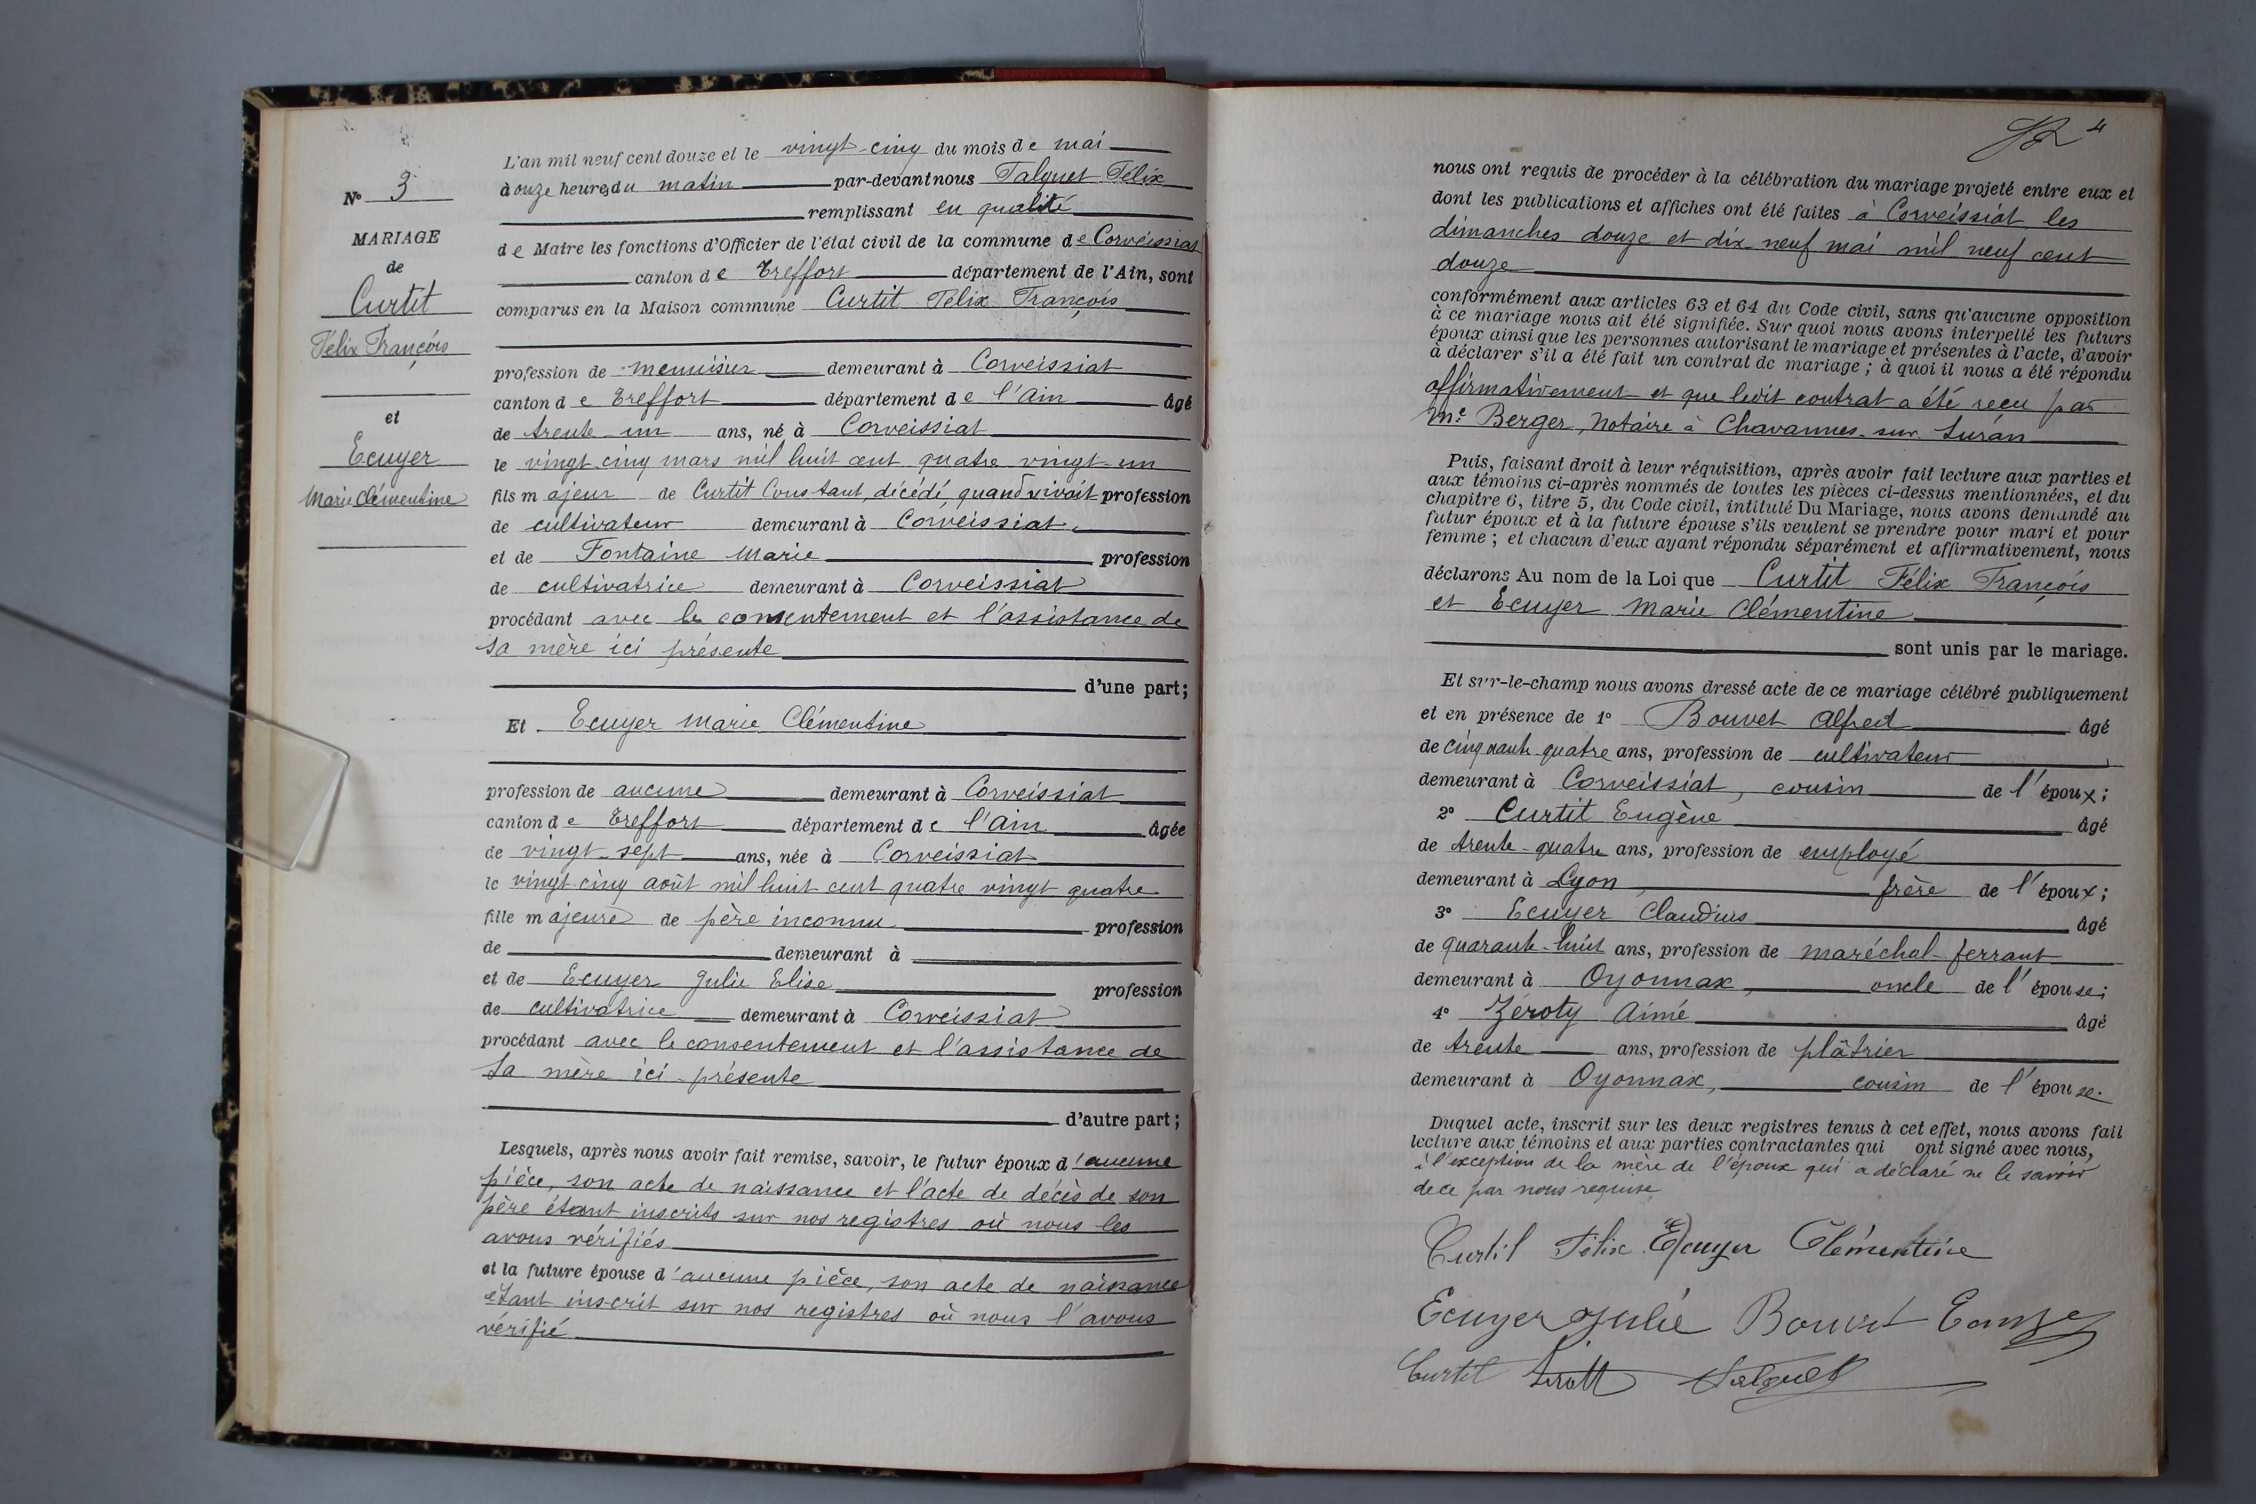 N° 3
MARIAGE
de
Curtit
Félix François
et
Ecuyer
Marie Clémentine
L'an mil neuf cent douze et le vingt-cinq du mois de mai
à onze heures du matin par-devant nous Talquet Félix
remplissant en qualité
de Maire les fonctions d'Officier de l'état civil de la commune de Corveissiat
canton de Treffort département de l'Ain, sont
comparus en la Maison commune Curtit Félix François
profession de menuisier demeurant à Corveissiat
canton de Treffort département de l'Ain âgé
de trente un ans, né à Corveissiat
le vingt cinq mars mil huit cent quatre vingt-un
fils majeur de Curtit Constant, décédé, quand vivait profession
de cultivateur demeurant à Corveissiat,
et de Fontaine Marie profession
de cultivatrice demeurant à Corveissiat
procédant avec le consentement et l'assistance de
sa mère ici présente
d'une part;
Et Ecuyer Marie Clémentine
profession de aucune demeurant à Corveissiat
canton de Treffort département de l'Ain âgée
de vingt-sept ans, née à Corveissiat
le vingt-cinq août mil huit cent quatre vingt quatre
fille majeure de père inconnu profession
de demeurant à
et de Ecuyer Julie Elise profession
de cultivatrice demeurant à Corveissiat
procédant avec le consentement et l'assistance de
sa mère ici présente
d'autre part;
Lesquels, après nous avoir fait remise, savoir, le futur époux d'aucune
pièce, son acte de naissance et l'acte de décès de son
père étant inscrits sur nos registres où nous les
avons vérifiés
et la future épouse d'aucune pièce, son acte de naissance
étant inscrit sur nos registres où nous l'avons
vérifié
4
nous ont requis de procéder à la célébration du mariage projeté entre eux et
dont les publications et affiches ont été faites à Corveissiat les
dimanches douze et dix-neuf mai mil neuf cent
douze
conformément aux articles 63 et 64 du Code civil, sans qu'aucune opposition
à ce mariage nous ait été signifiée. Sur quoi nous avons interpellé les futurs
époux ainsi que les personnes autorisant le mariage et présentes à l'acte, d'avoir
à déclarer s'il a été fait un contrat de mariage; à quoi il nous a été répondu
affirmativement et que ledit contrat a été reçu par
Me Berger, Notaire à Chavannes-sur-Suran
Puis, faisant droit à leur réquisition, après avoir fait lecture aux parties et
aux témoins ci-après nommés de toutes les pièces ci-dessus mentionnées, et du
chapitre 6, titre 5, du Code civil, intitulé Du Mariage, nous avons demandé au
futur époux et à la future épouse s'ils veulent se prendre pour mari et pour
femme; et chacun d'eux ayant répondu séparément et affirmativement, nous
déclarons Au nom de la Loi que Curtit Félix François
et Ecuyer Marie Clémentine
sont unis par le mariage.
Et sur-le-champ nous avons dressé acte de ce mariage célébré publiquement
et en présence de 1° Bouvet Alfred âgé
de cinquante-quatre ans, profession de cultivateur
demeurant à Corveissiat, cousin de l'époux;
2° Curtit Eugène âgé
de trente-quatre ans, profession de employé
demeurant à Lyon, frère de l'époux;
3° Ecuyer Claudius âgé
de quarante-huit ans, profession de maréchal-ferrant
demeurant à Oyonnax, oncle de l'épouse;
4° Zéroty Aimé âgé
de trente ans, profession de plâtrier
demeurant à Oyonnax, cousin de l'épouse.
Duquel acte, inscrit sur les deux registres tenus à cet effet, nous avons fait
lecture aux témoins et aux parties contractantes qui ont signé avec nous,
à l'exception de la mère de l'époux qui a déclaré ne le savoir
de ce par nous requise
Curtit Félix Ecuyer Clémentine
Ecuyer Julie Bouvet
Curtit Talquet